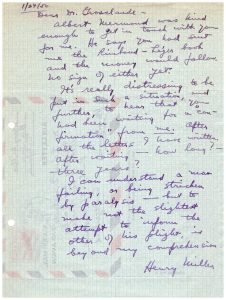 1/24/50
Dear M.
Albert Mermoud was kind
enough to get in touch with you
for me. He says you had sent
me the Rimbaud - Tiger book
and the money would follow.
No sign of either yet.
It's really distressing to be
put in such a situation and
further, to hear that "you
had been waiting for a con-
firmation" from me. After
all the letters I have written
after waiting — how long? —
three years.
I can understand a man
failing, or being stricken
by paralysis — but to
make not the slightest
attempt to inform the
other of his plight is
beyond my comprehension
Henry Miller